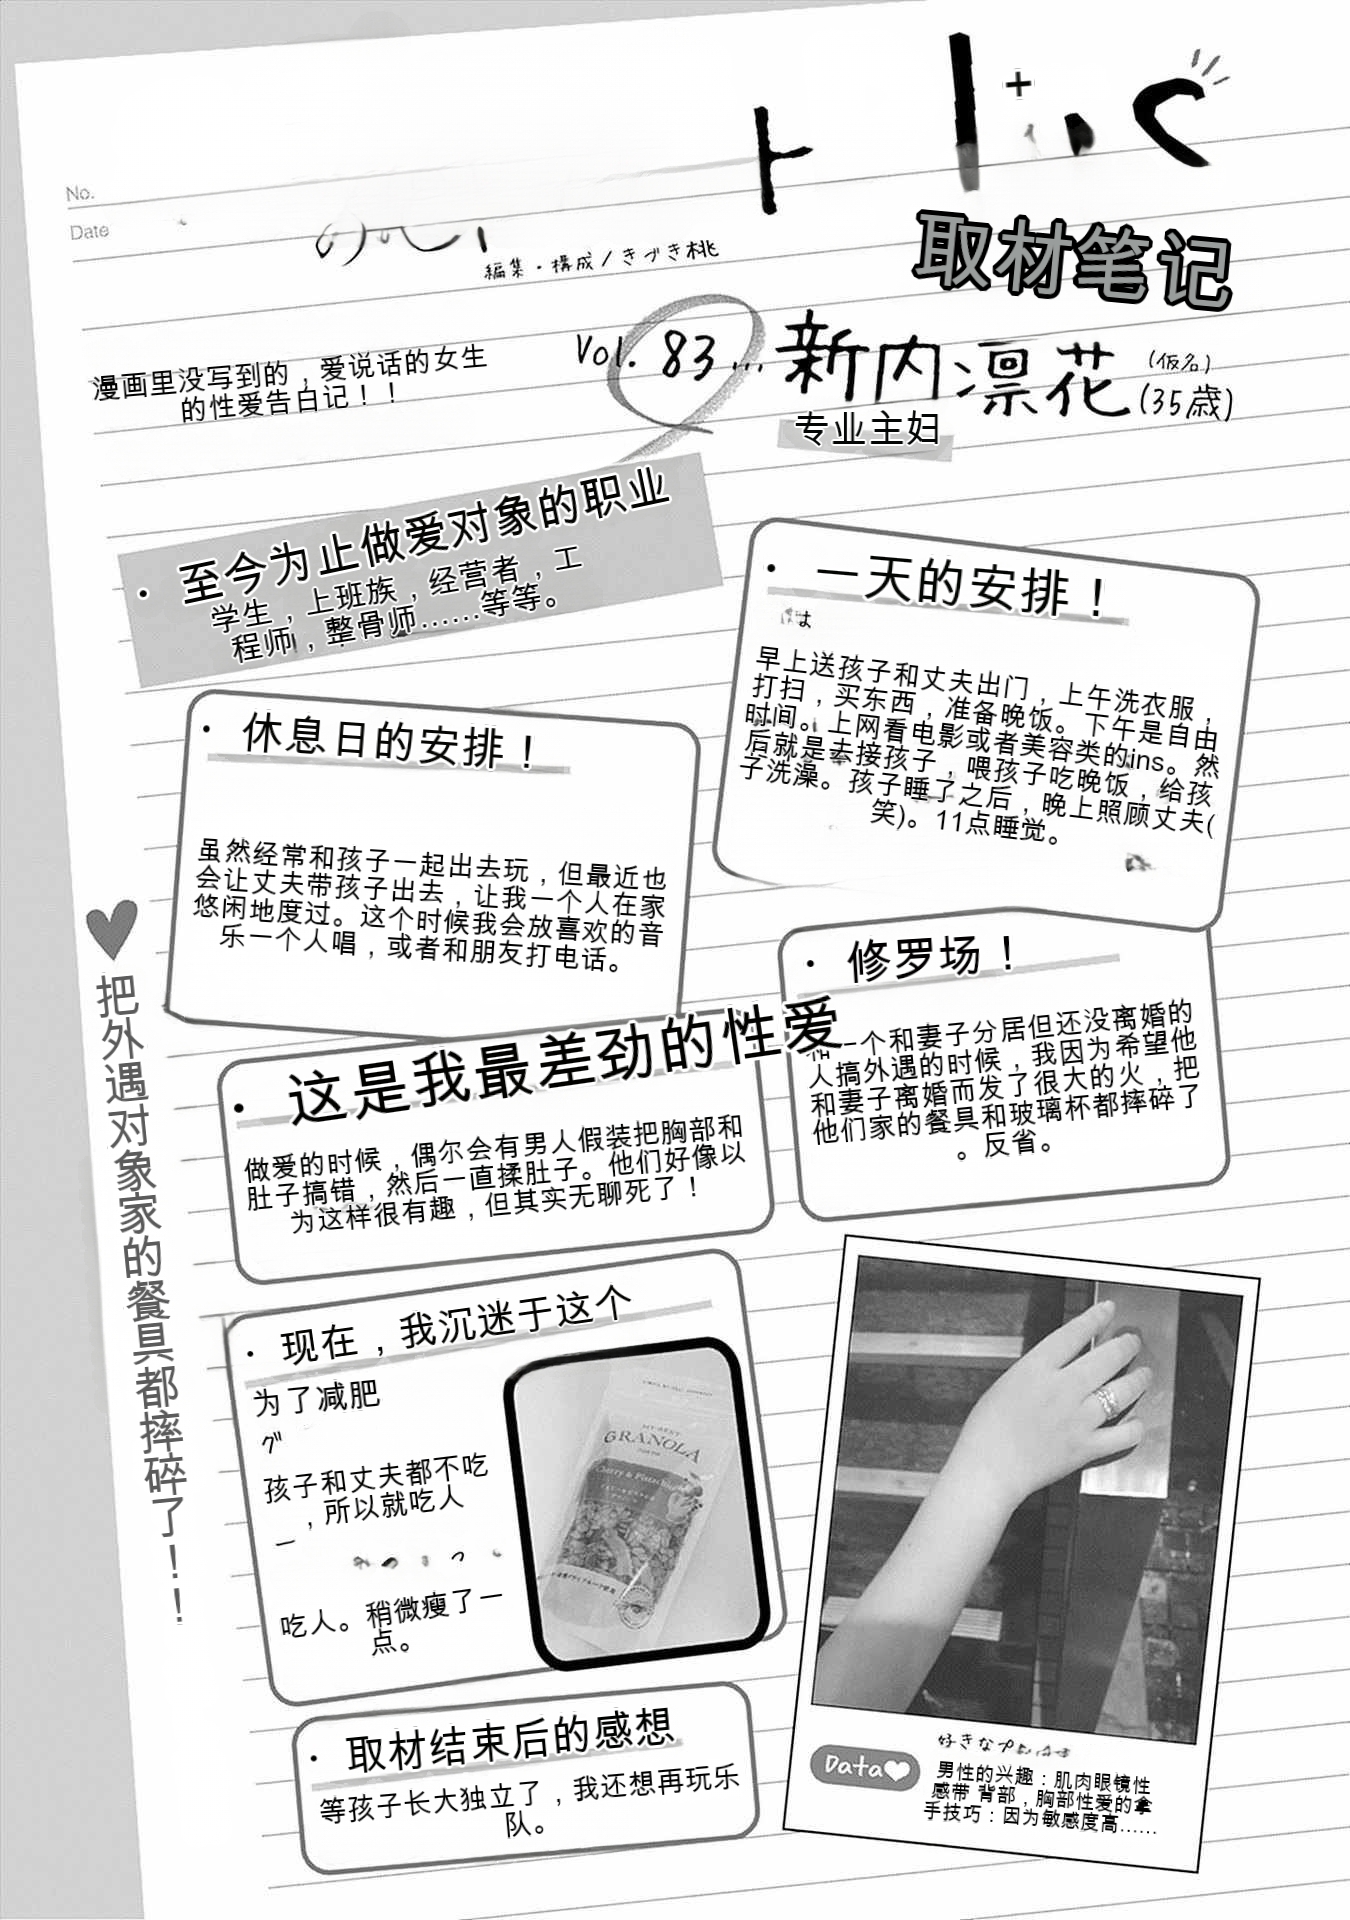 No.
Date
編集・構成/きづき桃
取材笔记
漫画里没写到的，爱说话的女生
的性爱告白记！！
Vol. 83… 新内凛花 (仮名) (35歳)
专业主妇
・至今为止做爱对象的职业
学生，上班族，经营者，工
程师，整骨师……等等。
・一天的安排！
は
早上送孩子和丈夫出门，上午洗衣服，
打扫，买东西，准备晚饭。下午是自由
时间。上网看电影或者美容类的ins。然
后就是去接孩子，喂孩子吃晚饭，给孩
子洗澡。孩子睡了之后，晚上照顾丈夫(
笑)。11点睡觉。
・休息日的安排！
虽然经常和孩子一起出去玩，但最近也
会让丈夫带孩子出去，让我一个人在家
悠闲地度过。这个时候我会放喜欢的音
乐一个人唱，或者和朋友打电话。
・修罗场！
和一个和妻子分居但还没离婚的
人搞外遇的时候，我因为希望他
和妻子离婚而发了很大的火，把
他们家的餐具和玻璃杯都摔碎了
。反省。
・这是我最差劲的性爱
做爱的时候，偶尔会有男人假装把胸部和
肚子搞错，然后一直揉肚子。他们好像以
为这样很有趣，但其实无聊死了！
♥把外遇对象家的餐具都摔碎了！！
・现在，我沉迷于这个
为了减肥
グ
孩子和丈夫都不吃
，所以就吃人
一
吃人。稍微瘦了一
点。
MY BEST
GRANOLA
Cherry & Pistachio
・取材结束后的感想
等孩子长大独立了，我还想再玩乐
队。
Data♥
好きな
男性的兴趣：肌肉眼镜性
感带 背部，胸部性爱的拿
手技巧：因为敏感度高……